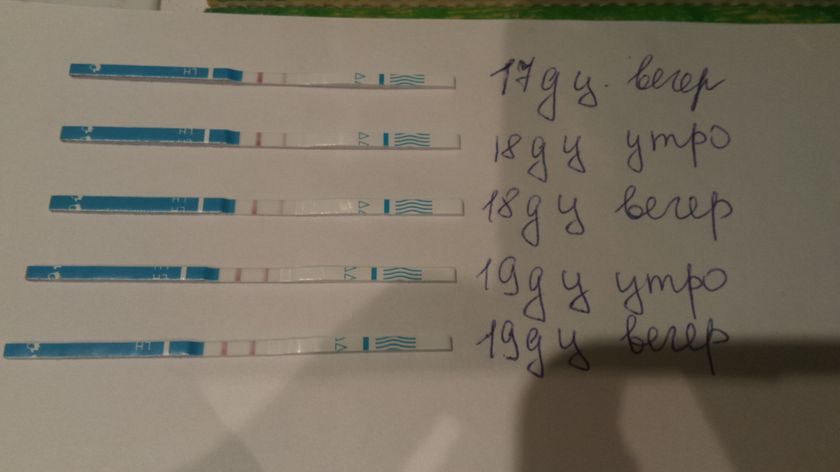 LH 17 д ц. вечер
LH 18 д ц утро
LH 18 д ц вечер
LH 19 д ц утро
LH 19 д ц вечер